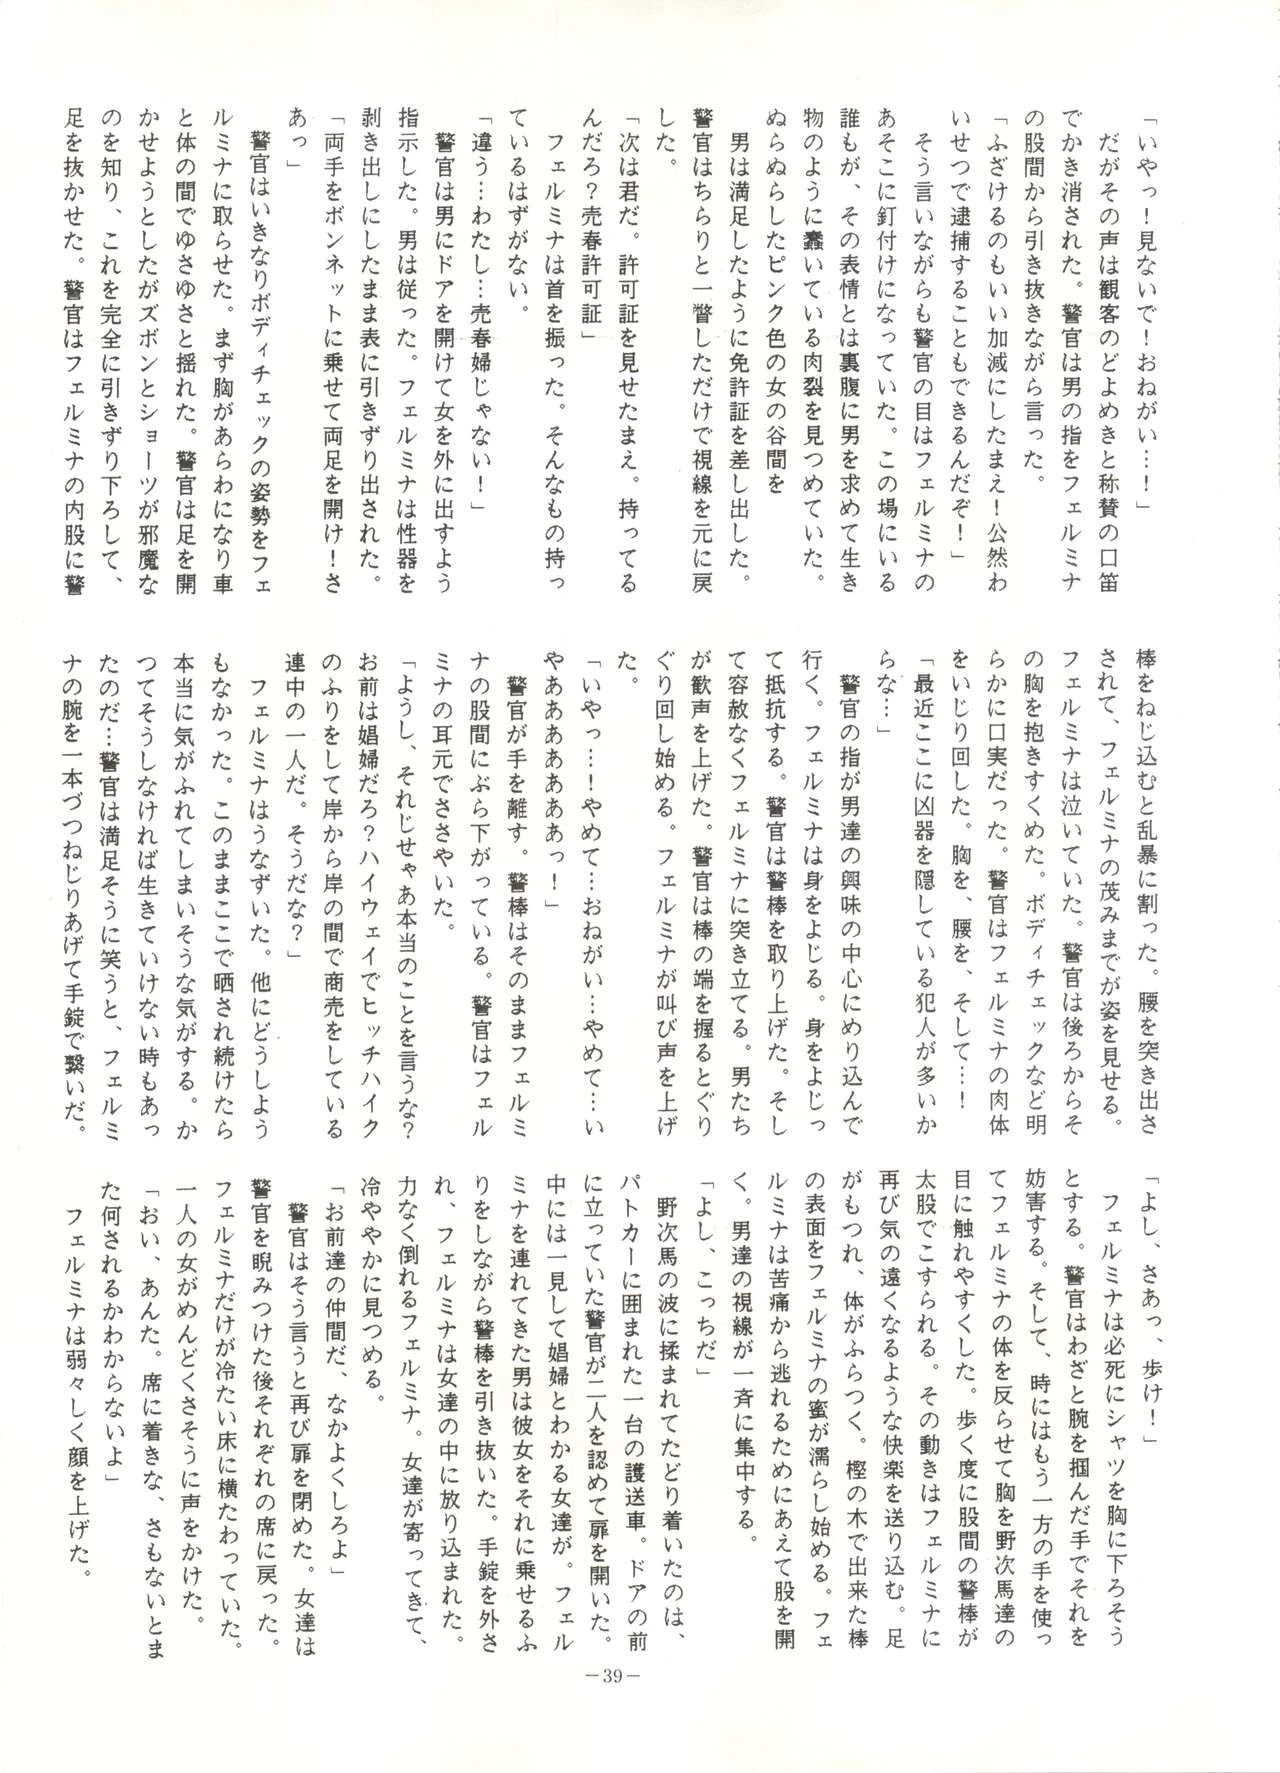 「いやっ！見ないで！おねがい…！」
　だがその声は観客のどよめきと称賛の口笛
でかき消された。警官は男の指をフェルミナ
の股間から引き抜きながら言った。
「ふざけるのもいい加減にしたまえ！公然わ
いせつで逮捕することもできるんだぞ！」
　そう言いながらも警官の目はフェルミナの
あそこに釘付けになっていた。この場にいる
誰もが、その表情とは裏腹に男を求めて生き
物のように蠢いている肉裂を見つめていた。
ぬらぬらしたピンク色の女の谷間を
　男は満足したように免許証を差し出した。
警官はちらりと一瞥しただけで視線を元に戻
した。
「次は君だ。許可証を見せたまえ。持ってる
んだろ？売春許可証」
　フェルミナは首を振った。そんなもの持っ
ているはずがない。
「違う…わたし…売春婦じゃない！」
　警官は男にドアを開けて女を外に出すよう
指示した。男は従った。フェルミナは性器を
剥き出しにしたまま表に引きずり出された。
「両手をボンネットに乗せて両足を開け！さ
あっ」
　警官はいきなりボディチェックの姿勢をフェ
ルミナに取らせた。まず胸があらわになり車
と体の間でゆさゆさと揺れた。警官は足を開
かせようとしたがズボンとショーツが邪魔な
のを知り、これを完全に引きずり下ろして、
足を抜かせた。警官はフェルミナの内股に警
棒をねじ込むと乱暴に割った。腰を突き出さ
されて、フェルミナの茂みまでが姿を見せる。
フェルミナは泣いていた。警官は後ろからそ
の胸を抱きすくめた。ボディチェックなど明
らかに口実だった。警官はフェルミナの肉体
をいじり回した。胸を、腰を、そして…！
「最近ここに凶器を隠している犯人が多いか
らな…」
　警官の指が男達の興味の中心にめり込んで
行く。フェルミナは身をよじる。身をよじっ
て抵抗する。警官は警棒を取り上げた。そし
て容赦なくフェルミナに突き立てる。男たち
が歓声を上げた。警官は棒の端を握るとぐり
ぐり回し始める。フェルミナが叫び声を上げ
た。
「いやっ…！やめて…おねがい…やめて…い
やあああああああっ！」
　警官が手を離す。警棒はそのままフェルミ
ナの股間にぶら下がっている。警官はフェル
ミナの耳元でささやいた。
「ようし、それじせゃあ本当のことを言うな？
お前は娼婦だろ？ハイウェイでヒッチハイク
のふりをして岸から岸の間で商売をしている
連中の一人だ。そうだな？」
　フェルミナはうなずいた。他にどうしよう
もなかった。このままここで晒され続けたら
本当に気がふれてしまいそうな気がする。か
つてそうしなければ生きていけない時もあっ
たのだ…警官は満足そうに笑うと、フェルミ
ナの腕を一本づつねじりあげて手錠で繋いだ。
「よし、さあっ、歩け！」
　フェルミナは必死にシャツを胸に下ろそう
とする。警官はわざと腕を掴んだ手でそれを
妨害する。そして、時にはもう一方の手を使っ
てフェルミナの体を反らせて胸を野次馬達の
目に触れやすくした。歩く度に股間の警棒が
太股でこすられる。その動きはフェルミナに
再び気の遠くなるような快楽を送り込む。足
がもつれ、体がふらつく。樫の木で出来た棒
の表面をフェルミナの蜜が濡らし始める。フェ
ルミナは苦痛から逃れるためにあえて股を開
く。男達の視線が一斉に集中する。
「よし、こっちだ」
　野次馬の波に揉まれてたどり着いたのは、
パトカーに囲まれた一台の護送車。ドアの前
に立っていた警官が二人を認めて扉を開いた。
中には一見して娼婦とわかる女達が。フェル
ミナを連れてきた男は彼女をそれに乗せるふ
りをしながら警棒を引き抜いた。手錠を外さ
れ、フェルミナは女達の中に放り込まれた。
力なく倒れるフェルミナ。女達が寄ってきて、
冷ややかに見つめる。
「お前達の仲間だ、なかよくしろよ」
　警官はそう言うと再び扉を閉めた。女達は
警官を睨みつけた後それぞれの席に戻った。
フェルミナだけが冷たい床に横たわっていた。
一人の女がめんどくさそうに声をかけた。
「おい、あんた。席に着きな、さもないとま
た何されるかわからないよ」
　フェルミナは弱々しく顔を上げた。
－39－